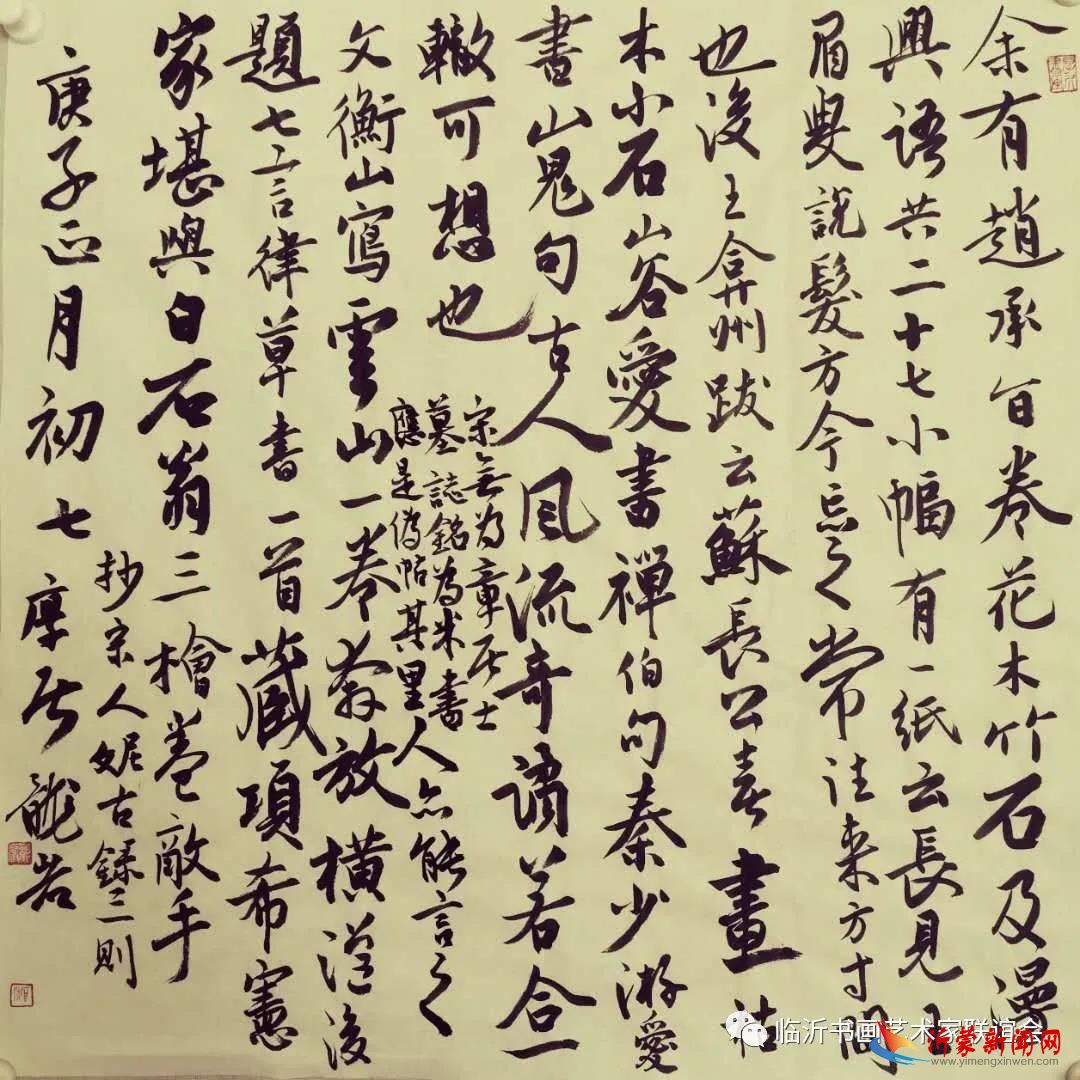 余有趙承旨卷花木竹石及漫
興語共二十七小幅有一紙云長見
眉叟說髮方今忘之常往来方寸間
也後王弇州跋云蘇長公喜畫枯
木小石山谷愛書禪伯句秦少游愛
書山鬼句古人風流奇譎若合一
轍可想也
宋無為章居士
墓誌銘為米書
應是偽帖其里人亦能言之
文衡山寫雲山一卷奔放橫溢後
題七言律草書一首藏項希憲
家堪與白石翁三檜卷敵手
抄宋人妮古録三則
庚子正月初七
临沂书画艺术家联谊会
沂蒙新闻网
www.yimengxinwen.com